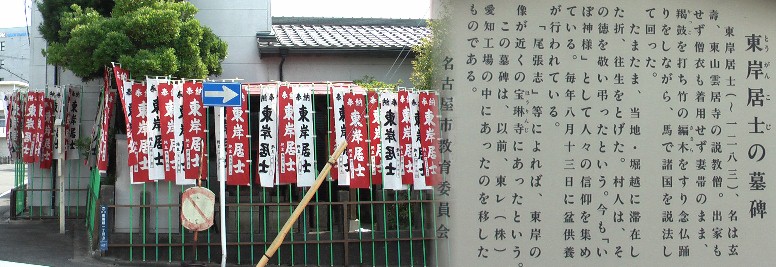 東岸居士の墓碑
とうがんこじ
東岸居士(～一二八三)、名は玄
寿、東山雲居寺の説教僧。出家も
せず僧衣も着用せず妻帯のまま、
羯鼓を打ち竹の編木をすり念仏踊
りをしながら、馬で諸国を説法し
て回った。
たまたま、当地・堀越に滞在し
た折、往生をとげた。村人は、そ
の徳を敬い弔ったという。今も「い
ぼ神様」として人々の信仰を集め
ている。毎年八月十三日に盆供養
が行われている。
「尾張志」等によれば、東岸の
像が近くの宝琳寺にあったという。
この墓碑は、以前、東レ(株)
愛知工場の中にあったのを移した
ものである。
名古屋市教育委員会
奉納
東岸居士
東岸居士
東岸居士
東岸居士
東岸居士
東岸居士
東岸居士
東岸居士
東岸居士
東岸居士
東岸居士